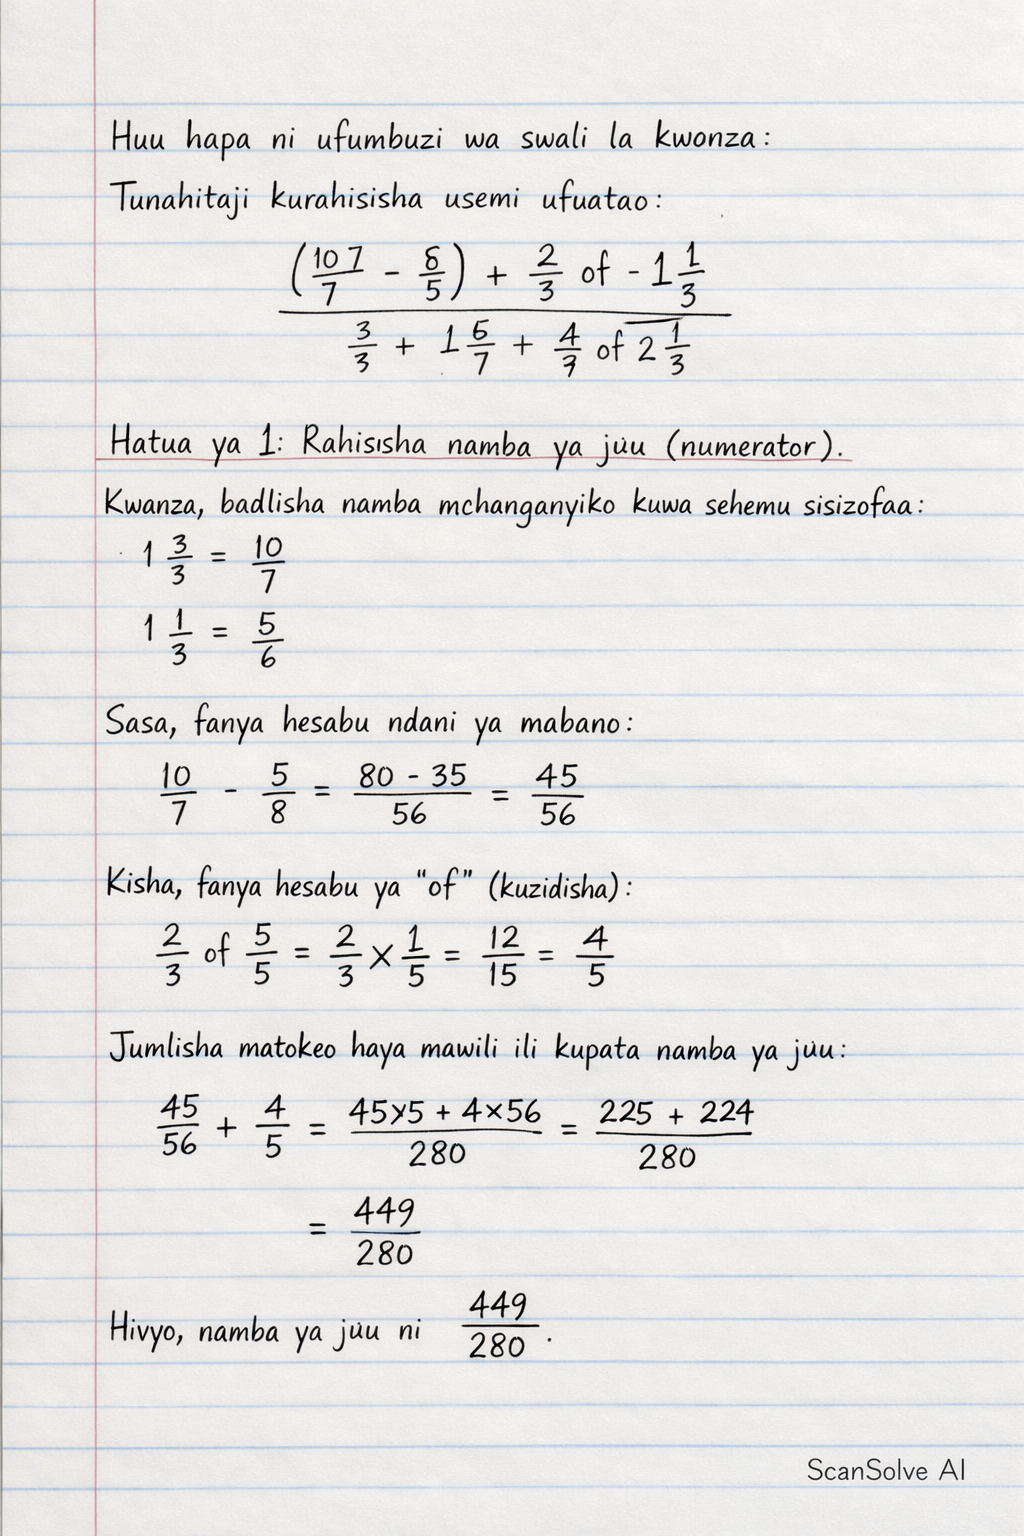 Huu hapa ni ufumbuzi wa swali la kwonza:
Tunahitaji kurahisisha usemi ufuatao:
(10 7/7 - 8/5) + 2/3 of - 1 1/3
3/3 + 1 6/7 + 4/7 of 2 1/3
Hatua ya 1: Rahisisha namba ya juu (numerator).
Kwanza, badlisha namba mchanganyiko kuwa sehemu sisizofaa:
1 3/3 = 10/7
1 1/3 = 5/6
Sasa, fanya hesabu ndani ya mabano:
10/7 - 5/8 = 80 - 35/56 = 45/56
Kisha, fanya hesabu ya "of" (kuzidisha):
2/3 of 5/5 = 2/3 × 1/5 = 12/15 = 4/5
Jumlisha matokeo haya mawili ili kupata namba ya juu:
45/56 + 4/5 = 45×5 + 4×56/280 = 225 + 224/280
= 449/280
Hivyo, namba ya juu ni 449/280.
ScanSolve AI